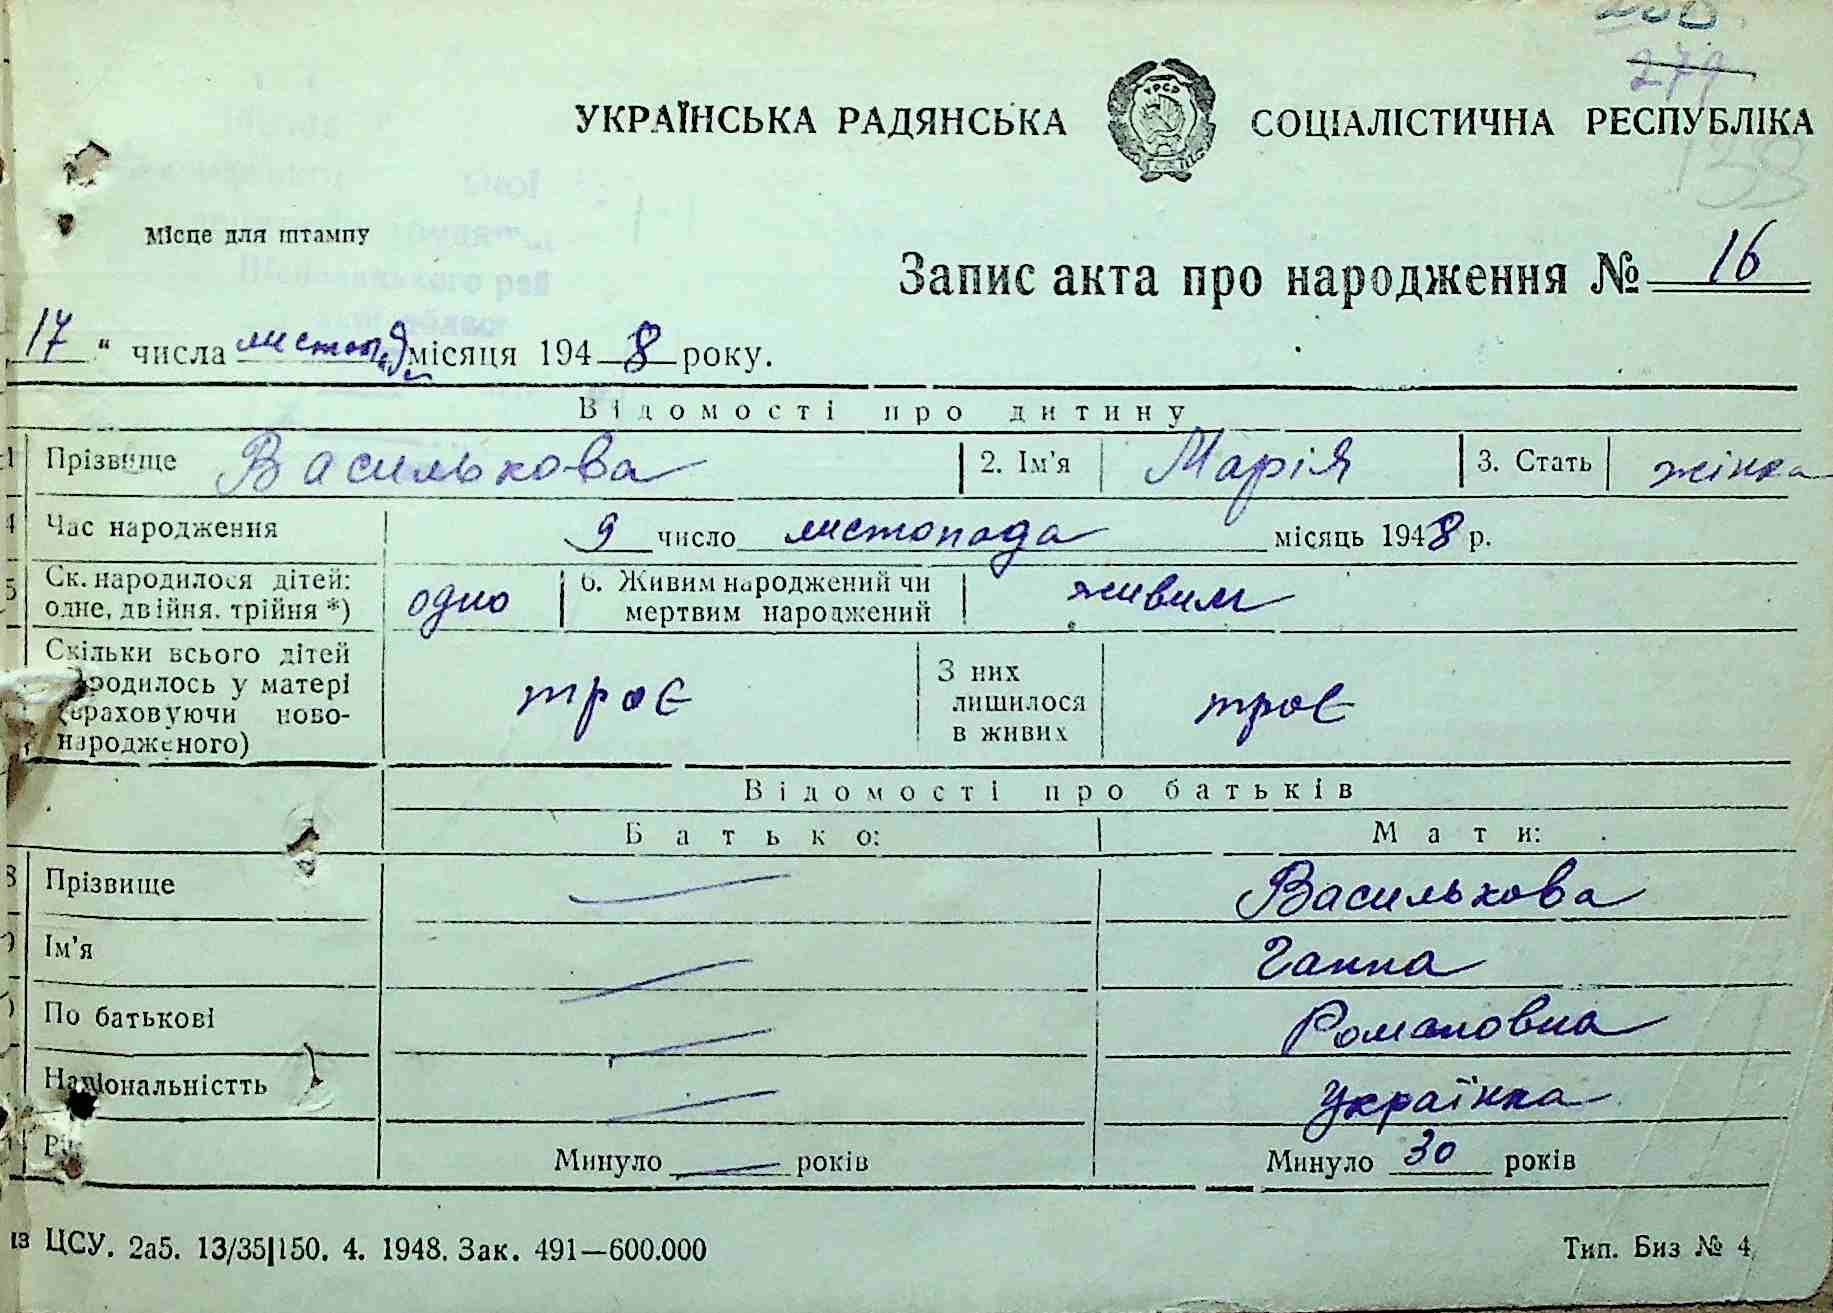 279
УКРАЇНСЬКА РАДЯНСЬКА СОЦІАЛІСТИЧНА РЕСПУБЛІКА
УРСР
133
Місце для штампу
Запис акта про народження № 16
17 " числа листопада місяця 1948 року.
Відомості про дитину
1 Прізвище Василькова 2. Ім'я Марія 3. Стать жінка
4 Час народження 9 число листопада місяць 1948 р.
5 Ск. народилося дітей: одне, двійня, трійня *) одно 6. Живим народжений чи мертвим народжений живим
Скільки всього дітей народилось у матері (враховуючи новонародженого) троє З них лишилося в живих троє
Відомості про батьків
Батько: Мати:
8 Прізвище Василькова
9 Ім'я Ганна
По батькові Романовна
Національністть Українка
Минуло років Минуло 30 років
ЦСУ. 2а5. 13/35|150. 4. 1948. Зак. 491—600.000 Тип. Биз № 4